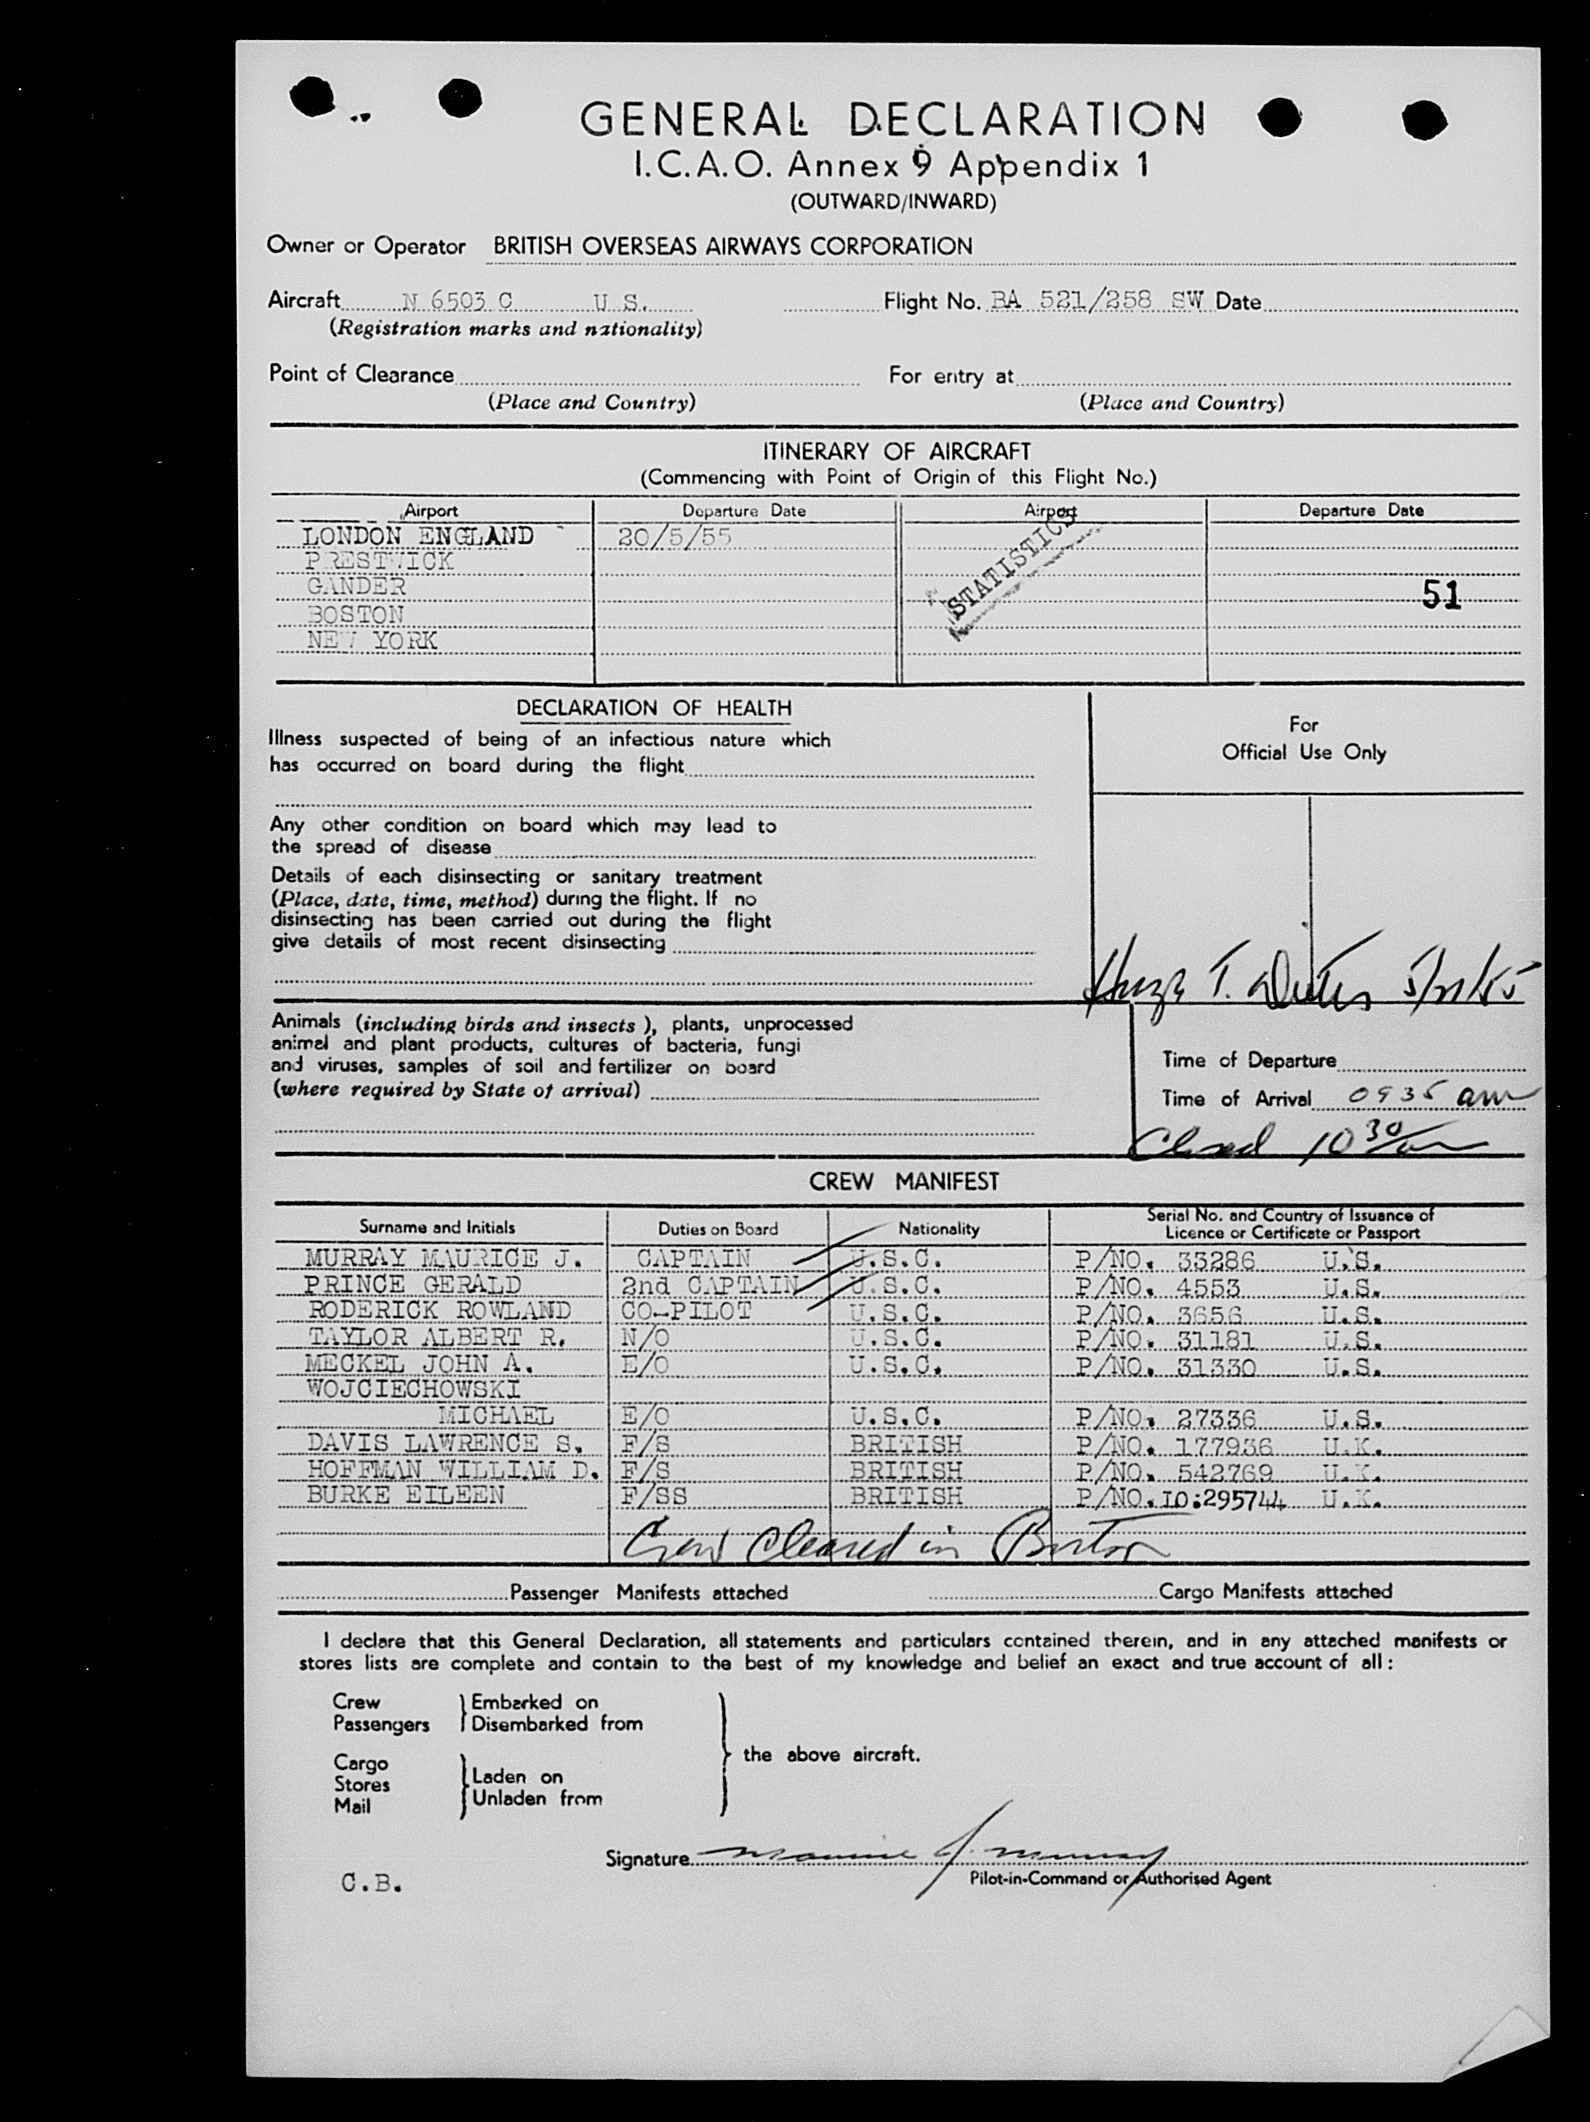 GENERAL DECLARATION
I.C.A.O. Annex 9 Appendix 1
(OUTWARD/INWARD)
Owner or Operator BRITISH OVERSEAS AIRWAYS CORPORATION
Aircraft N 6503 C U S. Flight No. BA 521/258 SW Date
(Registration marks and nationality)
Point of Clearance For entry at
(Place and Country) (Place and Country)
ITINERARY OF AIRCRAFT
(Commencing with Point of Origin of this Flight No.)
Airport Departure Date Airport Departure Date
LONDON ENGLAND 20/5/55
PRESTWICK
GANDER
STATISTICS
51
BOSTON
NEW YORK
DECLARATION OF HEALTH
Illness suspected of being of an infectious nature which
has occurred on board during the flight
For
Official Use Only
Any other condition on board which may lead to
the spread of disease
Details of each disinsecting or sanitary treatment
(Place, date, time, method) during the flight. If no
disinsecting has been carried out during the flight
give details of most recent disinsecting
T.
Animals (including birds and insects), plants, unprocessed
animal and plant products, cultures of bacteria, fungi
and viruses, samples of soil and fertilizer on board
(where required by State of arrival)
Time of Departure
Time of Arrival 0935 am
Closed 10 30/am
CREW MANIFEST
Surname and Initials Duties on Board Nationality Serial No. and Country of Issuance of Licence or Certificate or Passport
MURRAY MAURICE J. CAPTAIN U.S.C. P/NO. 33286 U.S.
PRINCE GERALD 2nd CAPTAIN U.S.C. P/NO. 4553 U.S.
RODERICK ROWLAND CO-PILOT U.S.C. P/NO. 3656 U.S.
TAYLOR ALBERT R. N/O U.S.C. P/NO. 31181 U.S.
MECKEL JOHN A. E/O U.S.C. P/NO. 31330 U.S.
WOJCIECHOWSKI
MICHAEL E/O U.S.C. P/NO. 27336 U.S.
DAVIS LAWRENCE S. F/S BRITISH P/NO. 177936 U.K.
HOFFMAN WILLIAM D. F/S BRITISH P/NO. 542769 U.K.
BURKE EILEEN F/SS BRITISH P/NO. IO:295744 U.K.
Crew Cleared in Boston
Passenger Manifests attached Cargo Manifests attached
I declare that this General Declaration, all statements and particulars contained therein, and in any attached manifests or
stores lists are complete and contain to the best of my knowledge and belief an exact and true account of all:
Crew Embarked on
Passengers Disembarked from
the above aircraft.
Cargo
Stores Laden on
Mail Unladen from
Signature Maurice J. Murray
Pilot-in-Command or Authorised Agent
C.B.